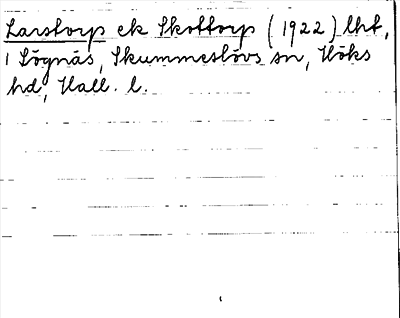 Larstorp ek Skottorp (1922) lht,
i Sögnäs, Skummeslövs sn, Höks
hd, Hall. l.